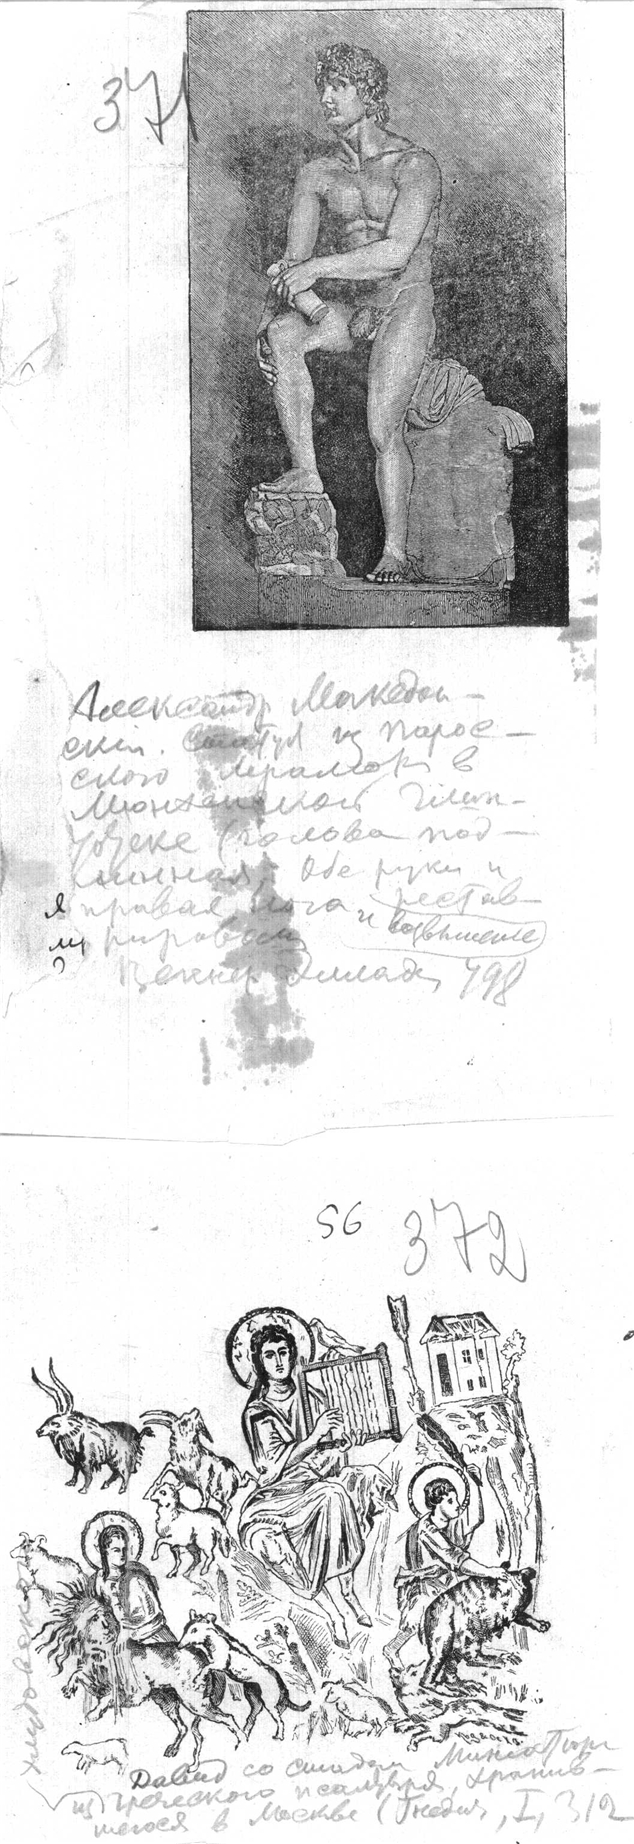 371
Александр Македон-
скiй. Статуя из парос-
ского мрамора в
Мюнхенской Глип-
тотеке (голова под-
линная, обе руки и
правая нога рестав-
рированы и возвышение
Я
?
Вегнер Эллада, 798
56
372
Хлудовской
Давид со стадом Миниатюра
из греческого псалтыря, храня-
щегося в Москве (Гнедич, I, 312